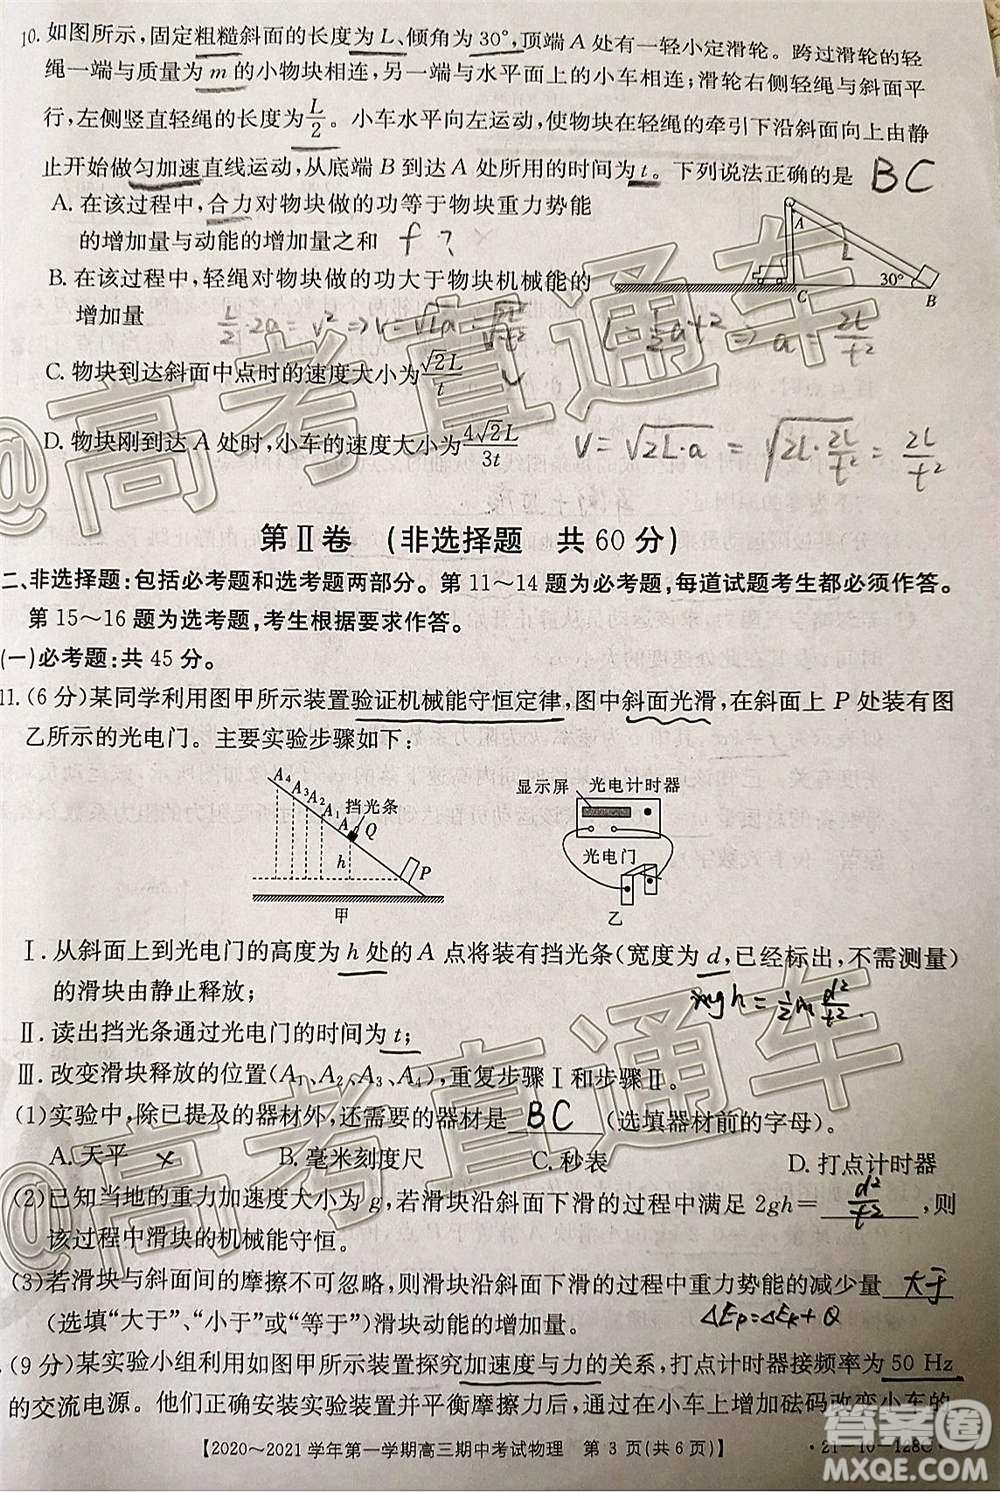 10. 如图所示，固定粗糙斜面的长度为 L、倾角为 30°，顶端 A 处有一轻小定滑轮。跨过滑轮的轻
绳一端与质量为 m 的小物块相连，另一端与水平面上的小车相连；滑轮右侧轻绳与斜面平
行，左侧竖直轻绳的长度为 L/2。小车向左运动，使物块在轻绳的牵引下沿斜面向上由静
止开始做匀加速直线运动，从底端 B 到达 A 处所用的时间为 t。下列说法正确的是 BC
A. 在该过程中，合力对物块做的功等于物块重力势能
的增加量与动能的增加量之和 f？
B. 在该过程中，轻绳对物块做的功大于物块机械能的
增加量
A
L
30°
C
B
L/2·2a = v² ⇒ v = √La = √2L²/t²
L = 1/2at² ⇒ a = 2L/t²
C. 物块到达斜面中点时的速度大小为 √2L/t
D. 物块刚到达 A 处时，小车的速度大小为 4√2L/3t
v = √2L·a = √2L·2L/t² = 2L/t²
第Ⅱ卷 （非选择题 共 60 分）
二、非选择题：包括必考题和选考题两部分。第 11～14 题为必考题，每道试题考生都必须作答。
第 15～16 题为选考题，考生根据要求作答。
(一)必考题：共 45 分。
11. (6 分)某同学利用图甲所示装置验证机械能守恒定律，图中斜面光滑，在斜面上 P 处装有图
乙所示的光电门。主要实验步骤如下：
A₄ A₃ A₂ A₁ A 挡光条 Q
h
P
甲
显示屏 光电计时器
光电门
乙
Ⅰ. 从斜面上到光电门的高度为 h 处的 A 点将装有挡光条(宽度为 d，已经标出，不需测量)
的滑块由静止释放；
mgh = 1/2 m d²/t²
Ⅱ. 读出挡光条通过光电门的时间为 t；
Ⅲ. 改变滑块释放的位置(A₁、A₂、A₃、A₄)，重复步骤Ⅰ和步骤Ⅱ。
(1)实验中，除已提及的器材外，还需要的器材是 BC (选填器材前的字母)。
A. 天平 × B. 毫米刻度尺 C. 秒表 D. 打点计时器
(2)已知当地的重力加速度大小为 g，若滑块沿斜面下滑的过程中满足 2gh = d²/t²，则
该过程中滑块的机械能守恒。
(3)若滑块与斜面间的摩擦不可忽略，则滑块沿斜面下滑的过程中重力势能的减少量 大于
(选填“大于”、“小于”或“等于”)滑块动能的增加量。
ΔEp=ΔEk+Q
(9 分)某实验小组利用如图甲所示装置探究加速度与力的关系，打点计时器接频率为 50 Hz
的交流电源。他们正确安装实验装置并平衡摩擦力后，通过在小车上增加砝码改变小车的
【2020～2021 学年第一学期高三期中考试物理 第 3 页(共 6 页)】 ·21-10-128C·
@高考直通车
@高考直通车
答案圈
MXQE.COM